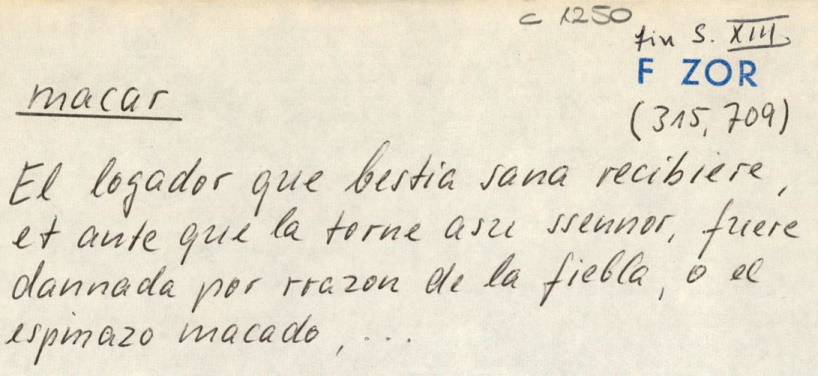 c 1250
fin S. XIII.
F ZOR
macar
(315, 709)
El logador que bestia sana recibiere,
et ante que la torne asu ssennor, fuere
dannada por rrazon de la fiebla, o el
espinazo macado, ...